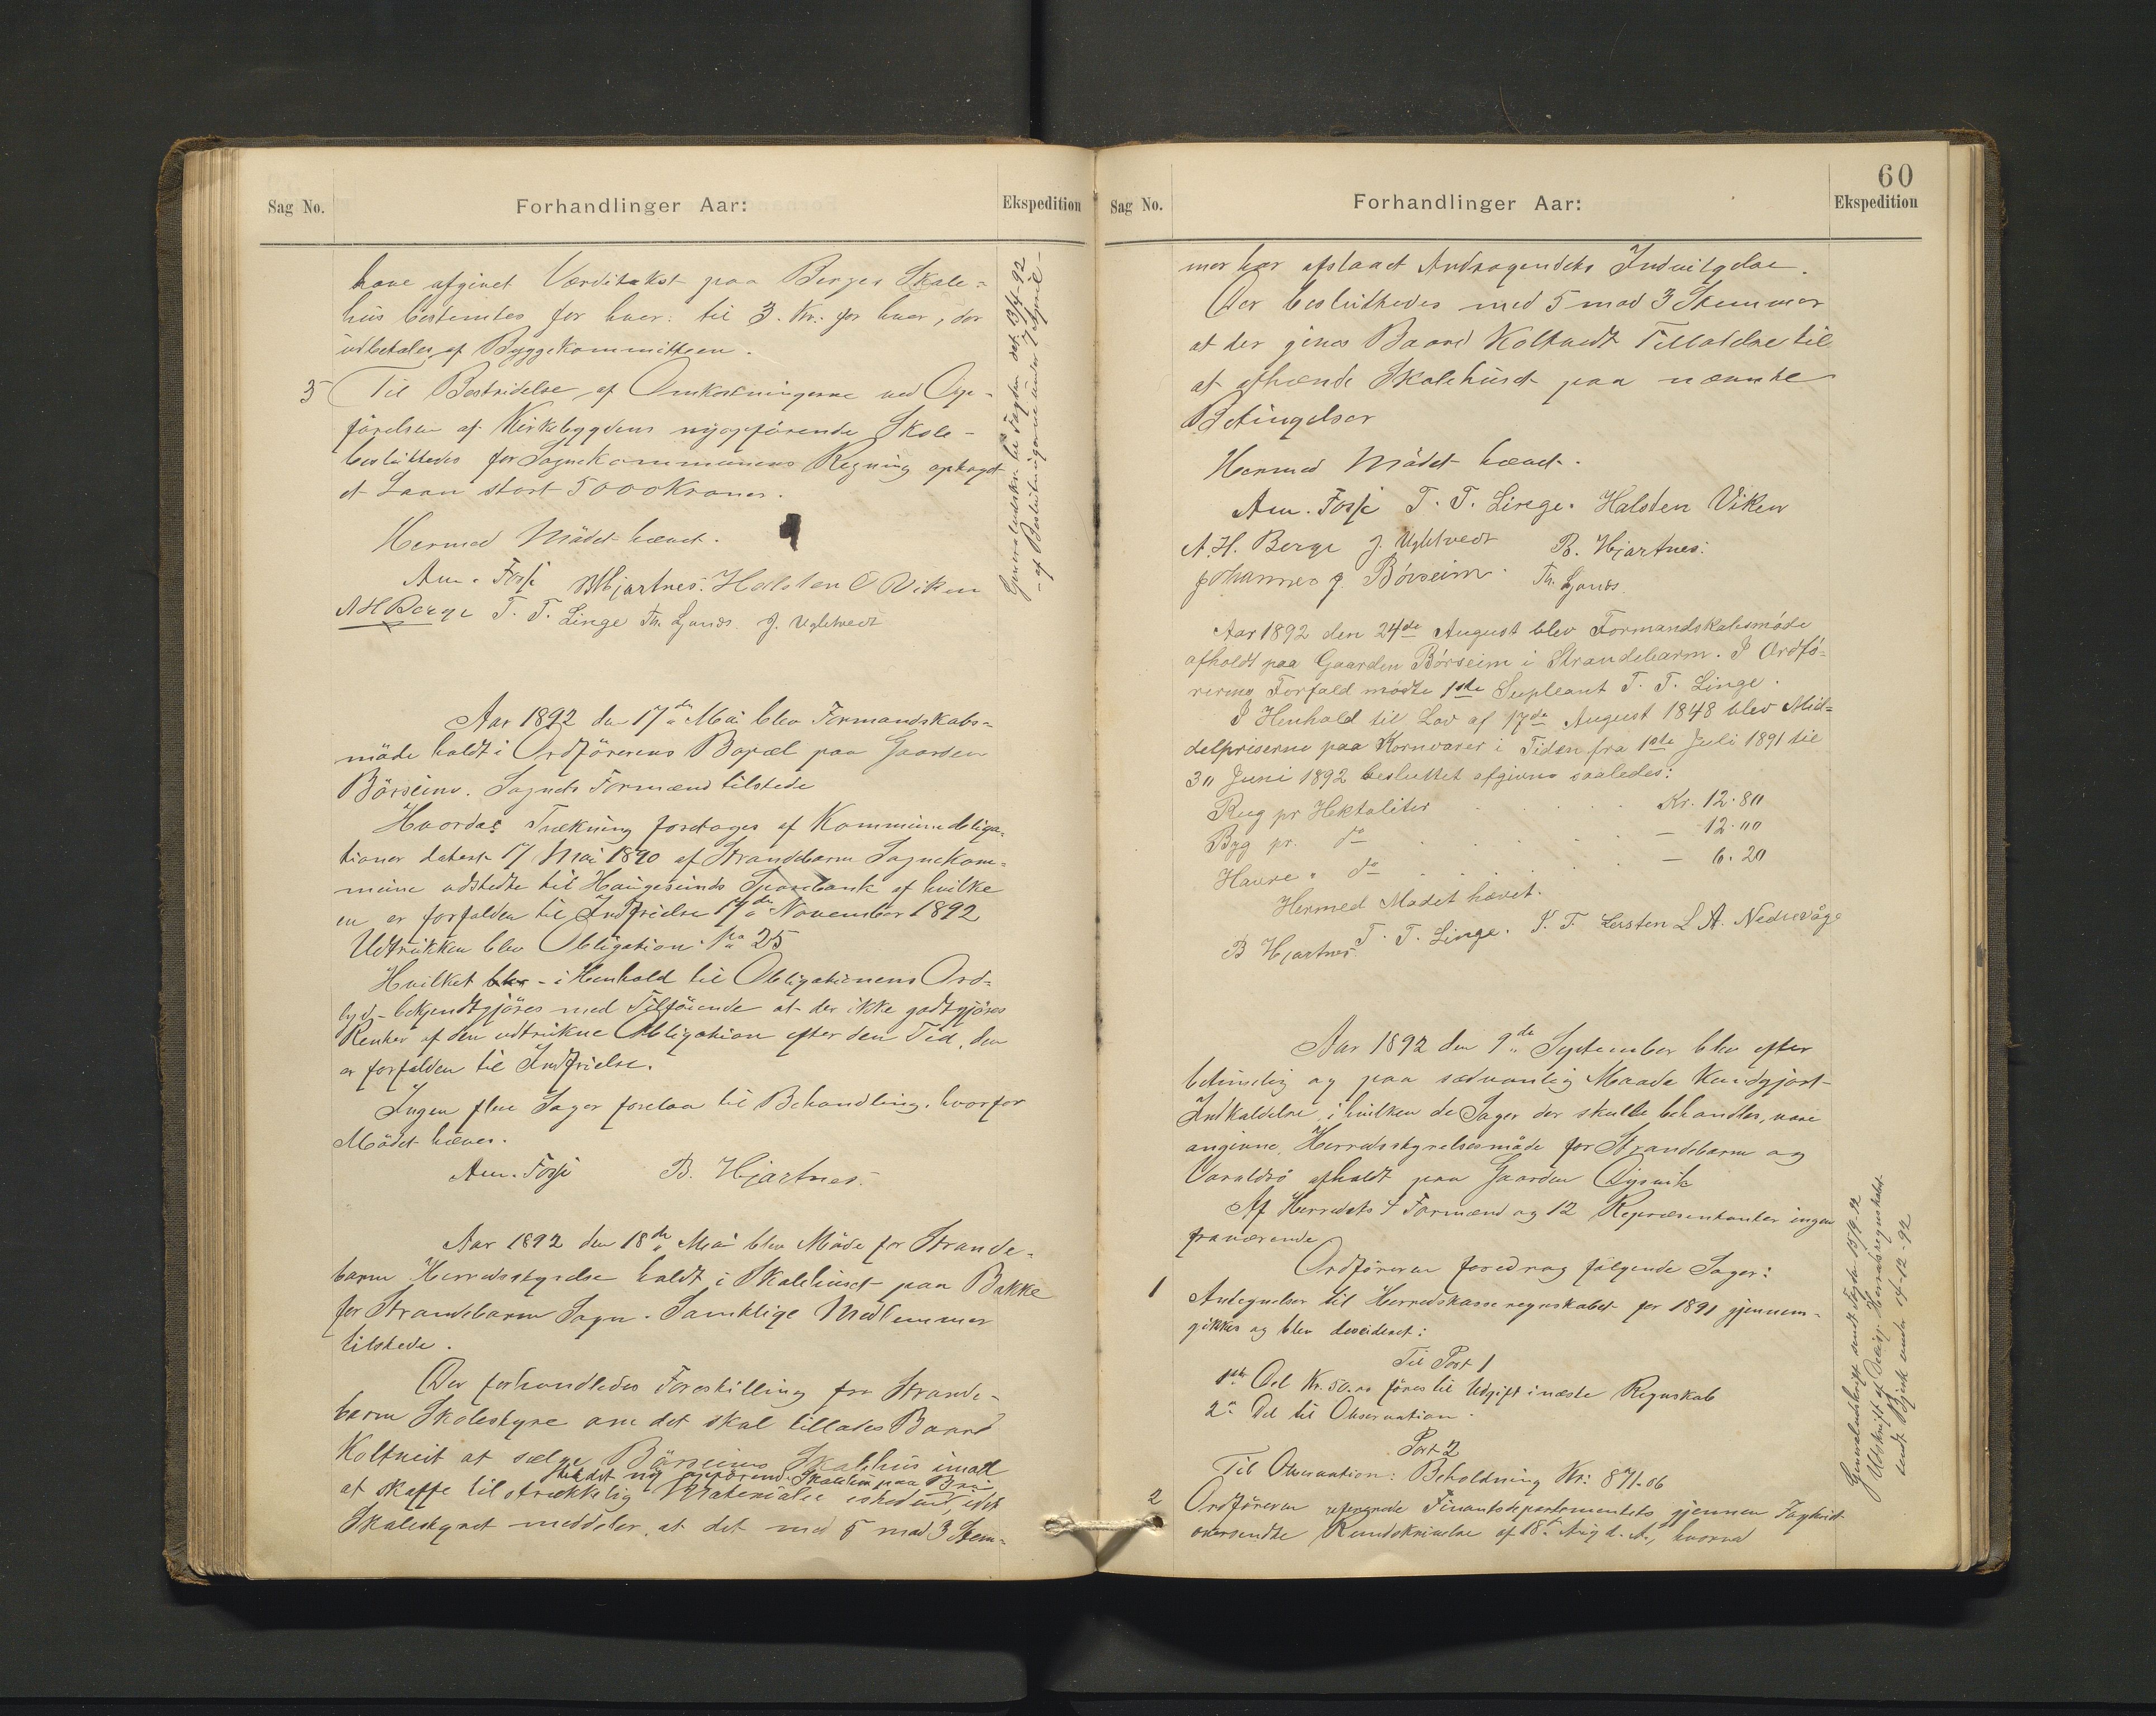 Sag No.
Forhandlinger Aar:
Ekspedition
have afgivet Værditakst paa Berges Skole=
hus bestemtes for hver: til 3. Kr. for hver, der
udbetales af Byggekommitteen.
5 Til Bestridelse af Omkostningerne ved Op-
førelsen af Kirkebygdens nyopførende Skole-
besluttedes for Sognekommunens Regning optaget
et Laan stort 5000 Kroner.
Hermed Mödet hævet.
Am. Fosse B Hjartnes. Halsten O Viken
A H Berge T. T. Linge Th. Sjonds. J. Ugletvedt
Generaludskr. til Fogden  13/4-92
- af Beslutningerne under 7 April -
Aar 1892 den 17de Mai blev Formandskabs=
möde holdt i Ordförerens Bopæl paa Gaarden
Börseim. Sognets Formænd tilstede
Hvordas Trækning foretoges af Kommuneobliga-
tioner dateret 17 Mai 1890 af Strandebarm Sognekom=
mune udstedte til Haugesunds Sparebank af hvilke
en er forfalden til Indfrielse 17de November 1892
Udtrukken blev Obligation No 25
Hvilket blev - i Henhold til Obligationens Ord=
lyd - bekjendtgjöres med Tilföiende at der ikke godtgjöres
Renter af den udtrukne Obligation efter den Tid, den
er forfalden til Indfrielse.
Ingen flere Sager forelaa til Behandling, hvorfor
Mödet hæves.
Am. Fosse B. Hjartnes.
Aar 1892 den 18de Mai blev Möde for Strande-
barm Herredsstyrelse holdt i Skolehuset paa Bakke
for Strandebarm Sogn. Samtlige Medlemmer
tilstede.
Der forhandledes Forestilling fra Strande-
barm Skolestyre om det skal tillades Baard
Koltveit at sælge Börseims Skolehus imod
til det ny opförend. Skolehus paa Bru
at skaffe tilstrækkelig Materialer  , idet
Skolestyret meddeler, at det med 5 mod 3 Stem-
60
Sag No.
Forhandlinger Aar:
Ekspedition
mer har afslaaet Andragendets Indvilgelse.
Der besluttedes med 5 mod 3 Stemmer
at der gives Baard Koltvedt Tilladelse til
at afhænde Skolehuset paa nævnte
Betingelser
Hermed Mödet hævet.
Am. Fosse T. T. Linge. Halsten Viken
A. H. Berge J. Ugletvedt B. Hjartnes.
Johannes J. Börseim. Th. Sjonds.
Aar 1892 den 24de August blev Formandskabsmöde
afholdt paa Gaarden Börseim i Strandebarm. I Ordfö-
rerens Forfald mödte 1ste Supleant T. T. Linge.
I Henhold til Lov af 17de August 1848 blev Mid=
delpriserne paa Kornvarer i Tiden fra 1ste Juli 1891 til
30 Juni 1892 besluttet afgivne saaledes:
Rug pr Hektoliter . . . . Kr. 12.80
Byg pr. do . . . . — 12.00
Havre " do . . . . — 6.20
Hermed Mödet hævet.
B Hjartnes. T. T. Linge. T. T. Lersten L A. Nedrevåge
Aar 1892 den 9de September blev efter
betimelig og paa sædvanlig Maade kundgjort
Indkaldelse, i hvilken de Sager der skulle behandles, vare
angivne, Herredsstyrelsesmöde for Strandebarm og
Varaldsö afholdt paa Gaarden Oysvik
Af Herredets 4 Formænd og 12 Repræsentanter ingen
fraværende
Ordföreren foredrog fölgende Sager:
1 Antegnelser til Herredskasseregnskabet for 1891 gjennem-
gikkes og blev decideret:
Til Post 1
1ste Del Kr. 50.00 föres til Udgift i næste Regnskab
2den Del til Observation.
Post 2
Til Observation: Beholdning Kr: 871.06
2 Ordföreren refererede Finantsdepartementets gjennem Fogderiet
oversendte Rundskrivelse af 18de Aug d. A., hvorved
Generaludskrift sendt Fogden 15/9-92
Udskrift af Decisj. Herredsregnskabet
sendt  under 14-12-92